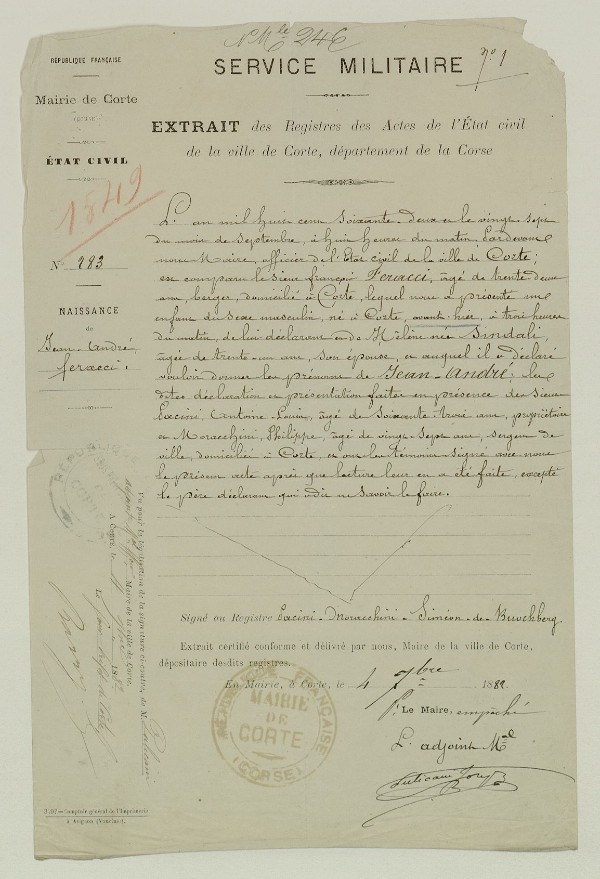 N° Mle 246
RÉPUBLIQUE FRANÇAISE
SERVICE MILITAIRE
n° 1
Mairie de Corte
EXTRAIT des Registres des Actes de l'État civil
de la ville de Corte, département de la Corse
ÉTAT CIVIL
1849
N° 293
NAISSANCE
de
Jean-André
feracci
L'an mil huit cent soixante-deux et le vingt sept
du mois de septembre, à huit heures du matin Pardevant
nous Maire, officier de l'État civil de la ville de Corte;
est comparu le sieur françois Feracci, âgé de trente-deux
ans berger, domicilié à Corte, lequel nous a présenté un
enfant du sexe masculin, né à Corte, avant-hier, à trois heures
du matin, de lui déclarant et de Hélène née Sindali,
âgée de trente-un ans, son épouse, et auquel il a déclaré
vouloir donner les prénoms de Jean-André; les
dites déclaration et présentation faites en présence des sieurs
Antoine-Louis, âgé de soixante-trois ans, propriétaire
et Moracchini, Philippe, âgé de vingt-sept ans, sergent de
ville, domiciliés à Corte, et ont les témoins signé avec nous
le présent acte après que lecture leur en a été faite, excepté
le père déclarant qui a dit ne savoir le faire.
Signé au Registre Moracchini-Siméon-de-Buochberg.
Extrait certifié conforme et délivré par nous, Maire de la ville de Corte,
dépositaire desdits registres.
En Mairie, à Corte, le 4 7bre 1882
Pr Le Maire, empêché
L'adjoint Mal
RÉPUBLIQUE FRANÇAISE
MAIRIE
DE
CORTE
(CORSE)
Vu pour la légalisation de la signature ci-contre, de M.
Maire de la ville de Corte.
A Corte, le 1882
Le
Comptoir général de l'Imprimerie
à Avignon (Vaucluse).